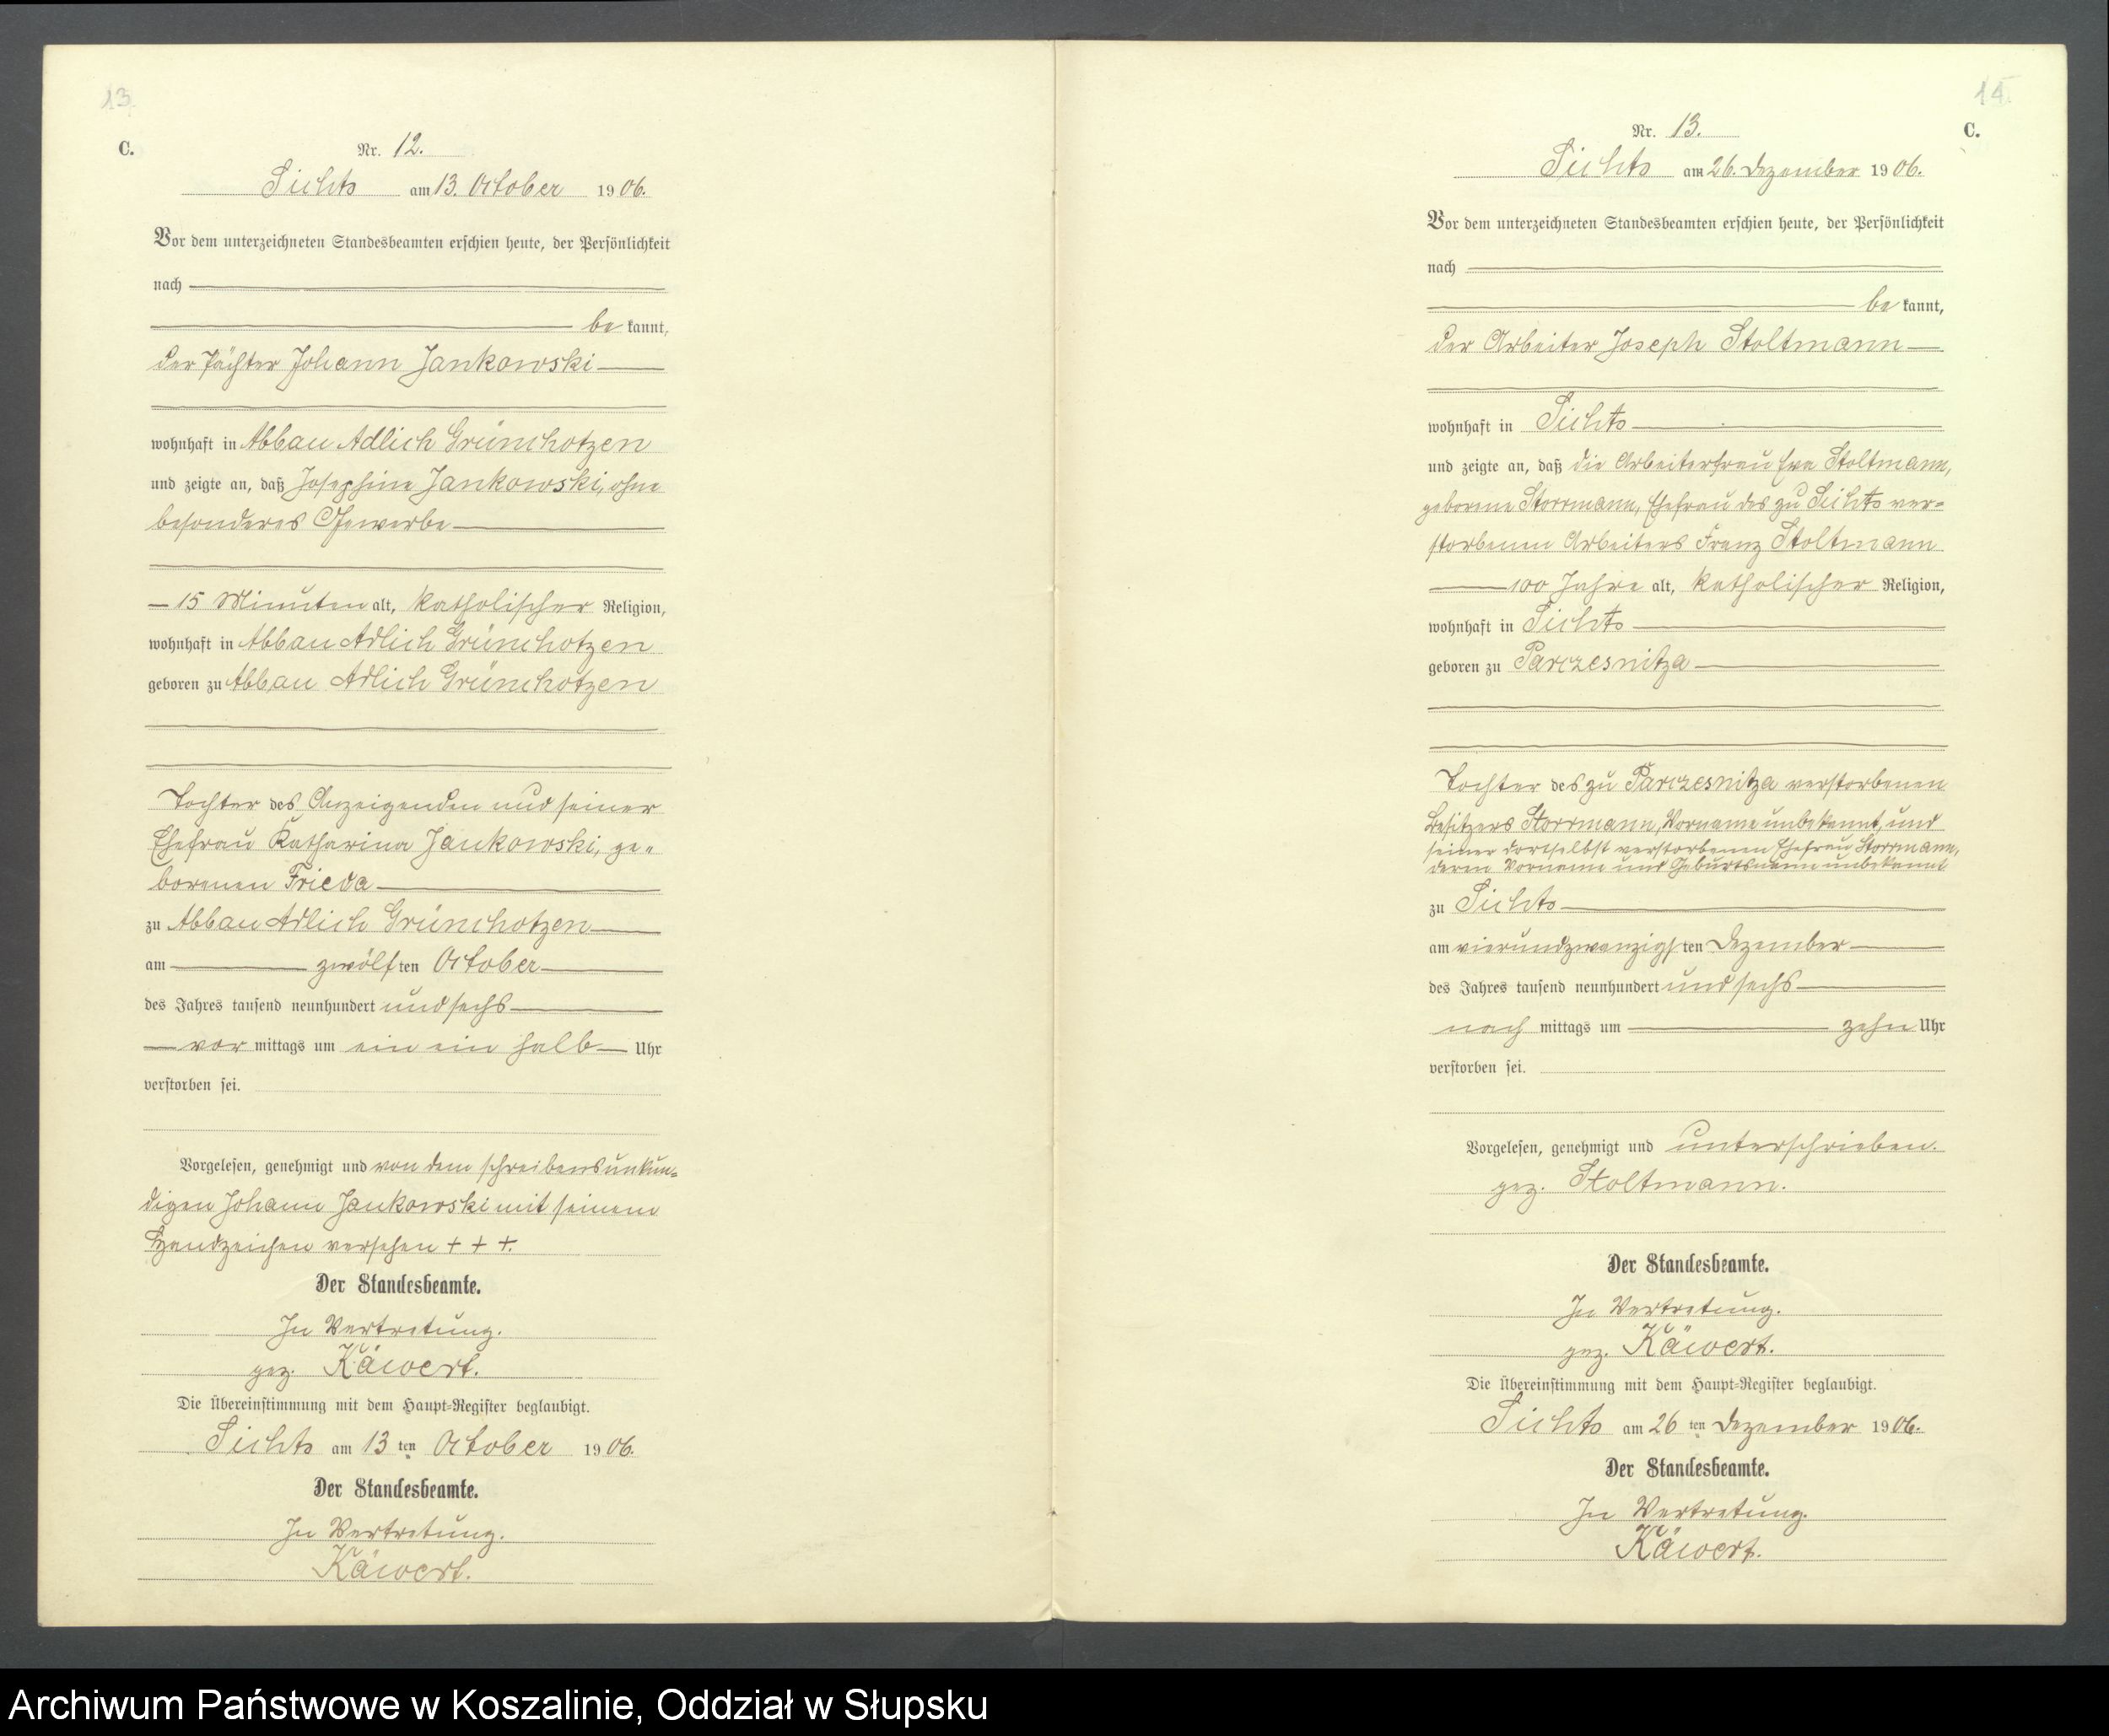 13.
C.
Nr. 12.
Sichts am 13. October 1906.
Vor dem unterzeichneten Standesbeamten erschien heute, der Persönlichkeit
nach
be kannt,
der Pächter Johann Jankowski
wohnhaft in Abbau Adlich Grünchotzen
und zeigte an, daß Josephine Jankowski, ohne
besonderes Gewerbe
15 Minuten alt, katholischer Religion,
wohnhaft in Abbau Adlich Grünchotzen
geboren zu Abbau Adlich Grünchotzen
Tochter des Anzeigenden und seiner
Ehefrau Katharina Jankowski, ge-
borenen Frieda
zu Abbau Adlich Grünchotzen
am zwölften October
des Jahres tausend neunhundert und sechs
vor mittags um ein ein halb Uhr
verstorben sei.
Vorgelesen, genehmigt und von dem schreibensunkun-
digen Johann Jankowski mit seinem
Handzeichen versehen + + +.
Der Standesbeamte.
In Vertretung.
gez. Käwert.
Die Übereinstimmung mit dem Haupt-Register beglaubigt.
Sichts am 13 ten October 1906.
Der Standesbeamte.
In Vertretung.
Käwert.
14.
C.
Nr. 13.
Sichts am 26. Dezember 1906.
Vor dem unterzeichneten Standesbeamten erschien heute, der Persönlichkeit
nach
be kannt,
der Arbeiter Joseph Stoltmann
wohnhaft in Sichts
und zeigte an, daß die Arbeiterfrau Eva Stoltmann,
geborene Storrmann, Ehefrau des zu Sichts ver-
storbenen Arbeiters Franz Stoltmann
100 Jahre alt, katholischer Religion,
wohnhaft in Sichts
geboren zu Parczesnitza
Tochter des zu Parczesnitza verstorbenen
Besitzers Storrmann, Vorname unbekannt, und
seiner dortselbst verstorbenen Ehefrau Storrmann,
deren Vorname und Geburtsname unbekannt
zu Sichts
am vierundzwanzigsten Dezember
des Jahres tausend neunhundert und sechs
nach mittags um zehn Uhr
verstorben sei.
Vorgelesen, genehmigt und unterschrieben.
gez. Stoltmann.
Der Standesbeamte.
In Vertretung.
gez. Käwert.
Die Übereinstimmung mit dem Haupt-Register beglaubigt.
Sichts am 26 ten Dezember 1906.
Der Standesbeamte.
In Vertretung.
Käwert.
Archiwum Państwowe w Koszalinie, Oddział w Słupsku